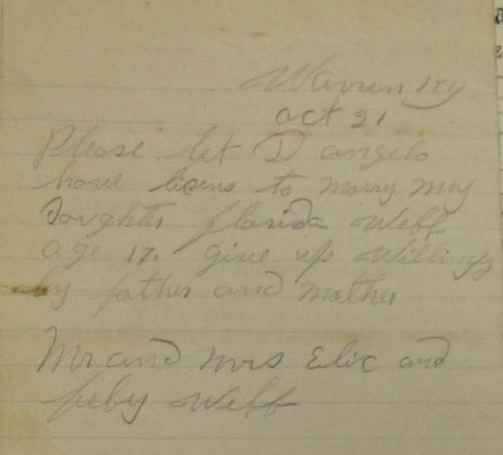 Warren Ky
oct 21
Please let D angelo
have lisens to marry my
Doughter florida Webb
age 17. give up Willingly
by father and mother
Mr and mrs Elic and
feby Webb